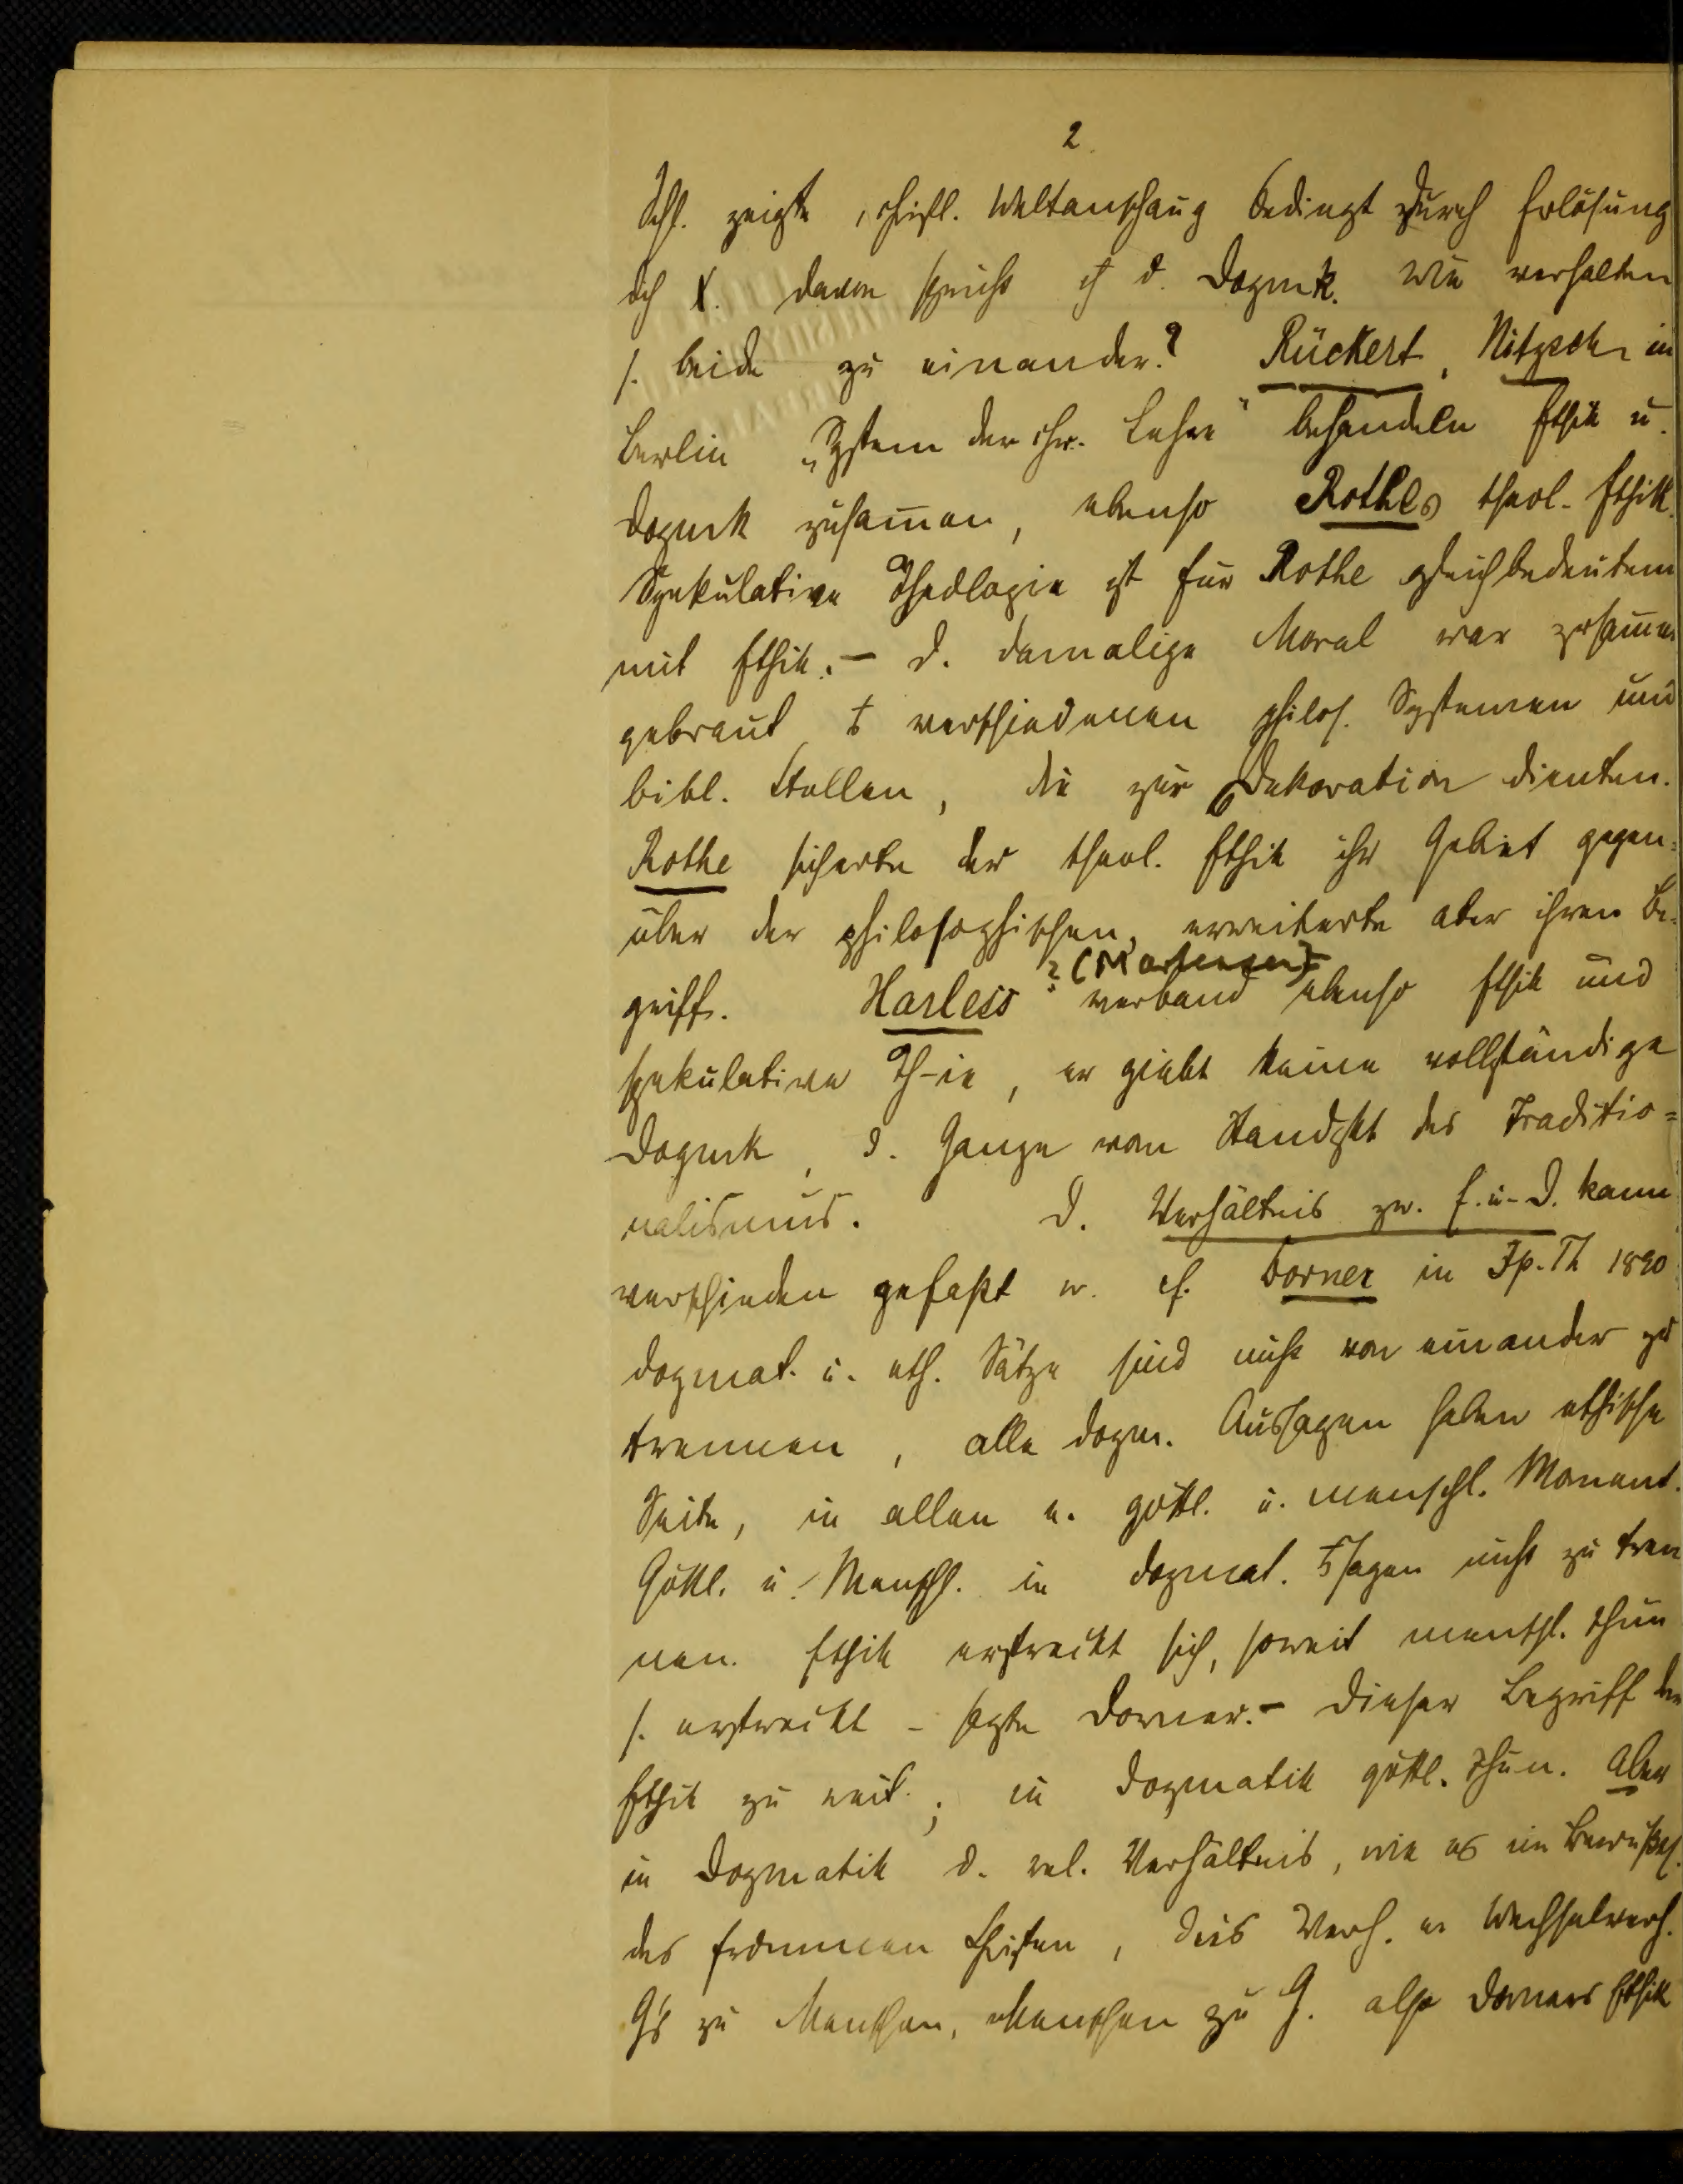 2.
Schl. zeigte, christl. Weltanschaug bedingt durch Erlösung
dch X. davon spricht ch d. Dogmk. Wie verhalten
s. beide zu einander? Rückert, Nitzsch in
Berlin „System der chr. Lehre" behandeln Ethik u.
Dogmk zusam̅en, ebenso Rothes theol. Ethik.
Spekulative Theologie ist für Rothe gleichbedeutend
mit Ethik. – D. damalige Moral war zusam̅en
gebraut verschiedenen philos. Systemen und
bibl. Stellen, die zur Dekoration dienten.
Rothe sicherte der theol. Ethik ihr Gebiet gegen=
über der philosophischen, erweiterte aber ihren Be=
griff. Harless ? (Martensen) verband ebenso Ethik und
spekulative Th-ie, er giebt keine vollständige
Dogmk, d. Ganze vom Standpkt des Traditio=
nalismus. D. Verhältnis zw. E. u. D. kann
verschieden gefaßt w. cf. Dorner in Jp. Th 1890
dogmat. u. eth. Sätze sind nicht von einander zu
trennen, alle dogm. Aussagen haben ethische
Seite, in allen e. göttl. u. menschl. Moment.
Göttl. u. Menschl. in dogmat. sagen nicht zu tren
nen. Ethik erstreckt sich, soweit menschl. Thun
s. erstreckt – sagte Dorner. – Dieser Begriff der
Ethik zu weit; in Dogmatik göttl. Thun. Aber
in Dogmatik d. rel. Verhältnis, wie es im Bewußts.
des frommen Christen, dies Verh. e. Wechselverh.
G's zu Menschen, Menschen zu G. also Dorners Ethik